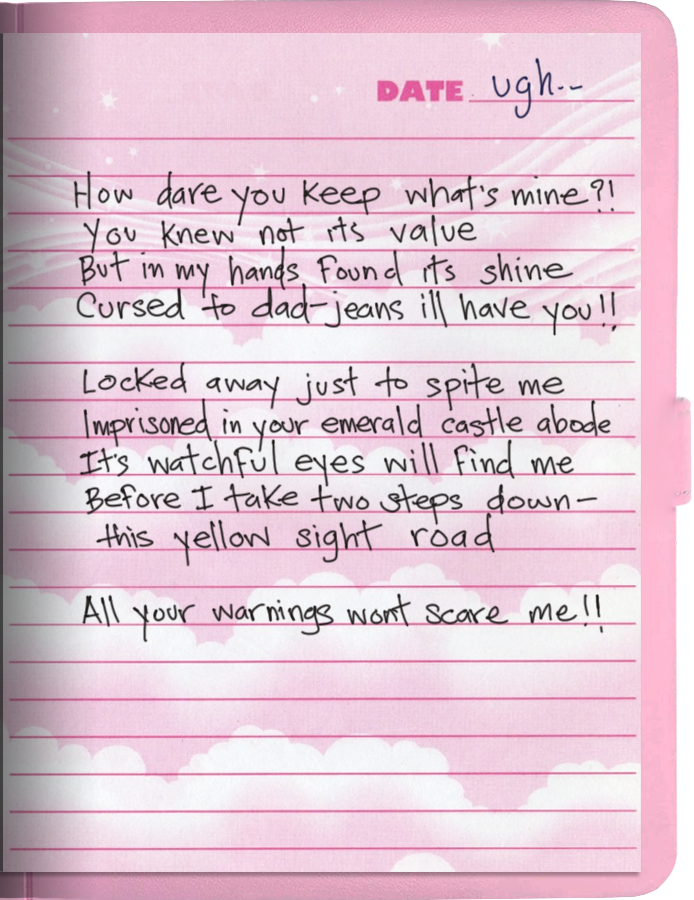 DATE ugh--
How dare you keep what's mine?!
You knew not its value
But in my hands found its shine
Cursed to dad-jeans ill have you!!
Locked away just to spite me
Imprisoned in your emerald castle abode
It's watchful eyes will find me
Before I take two steps down-
this yellow sight road
All your warnings wont scare me!!